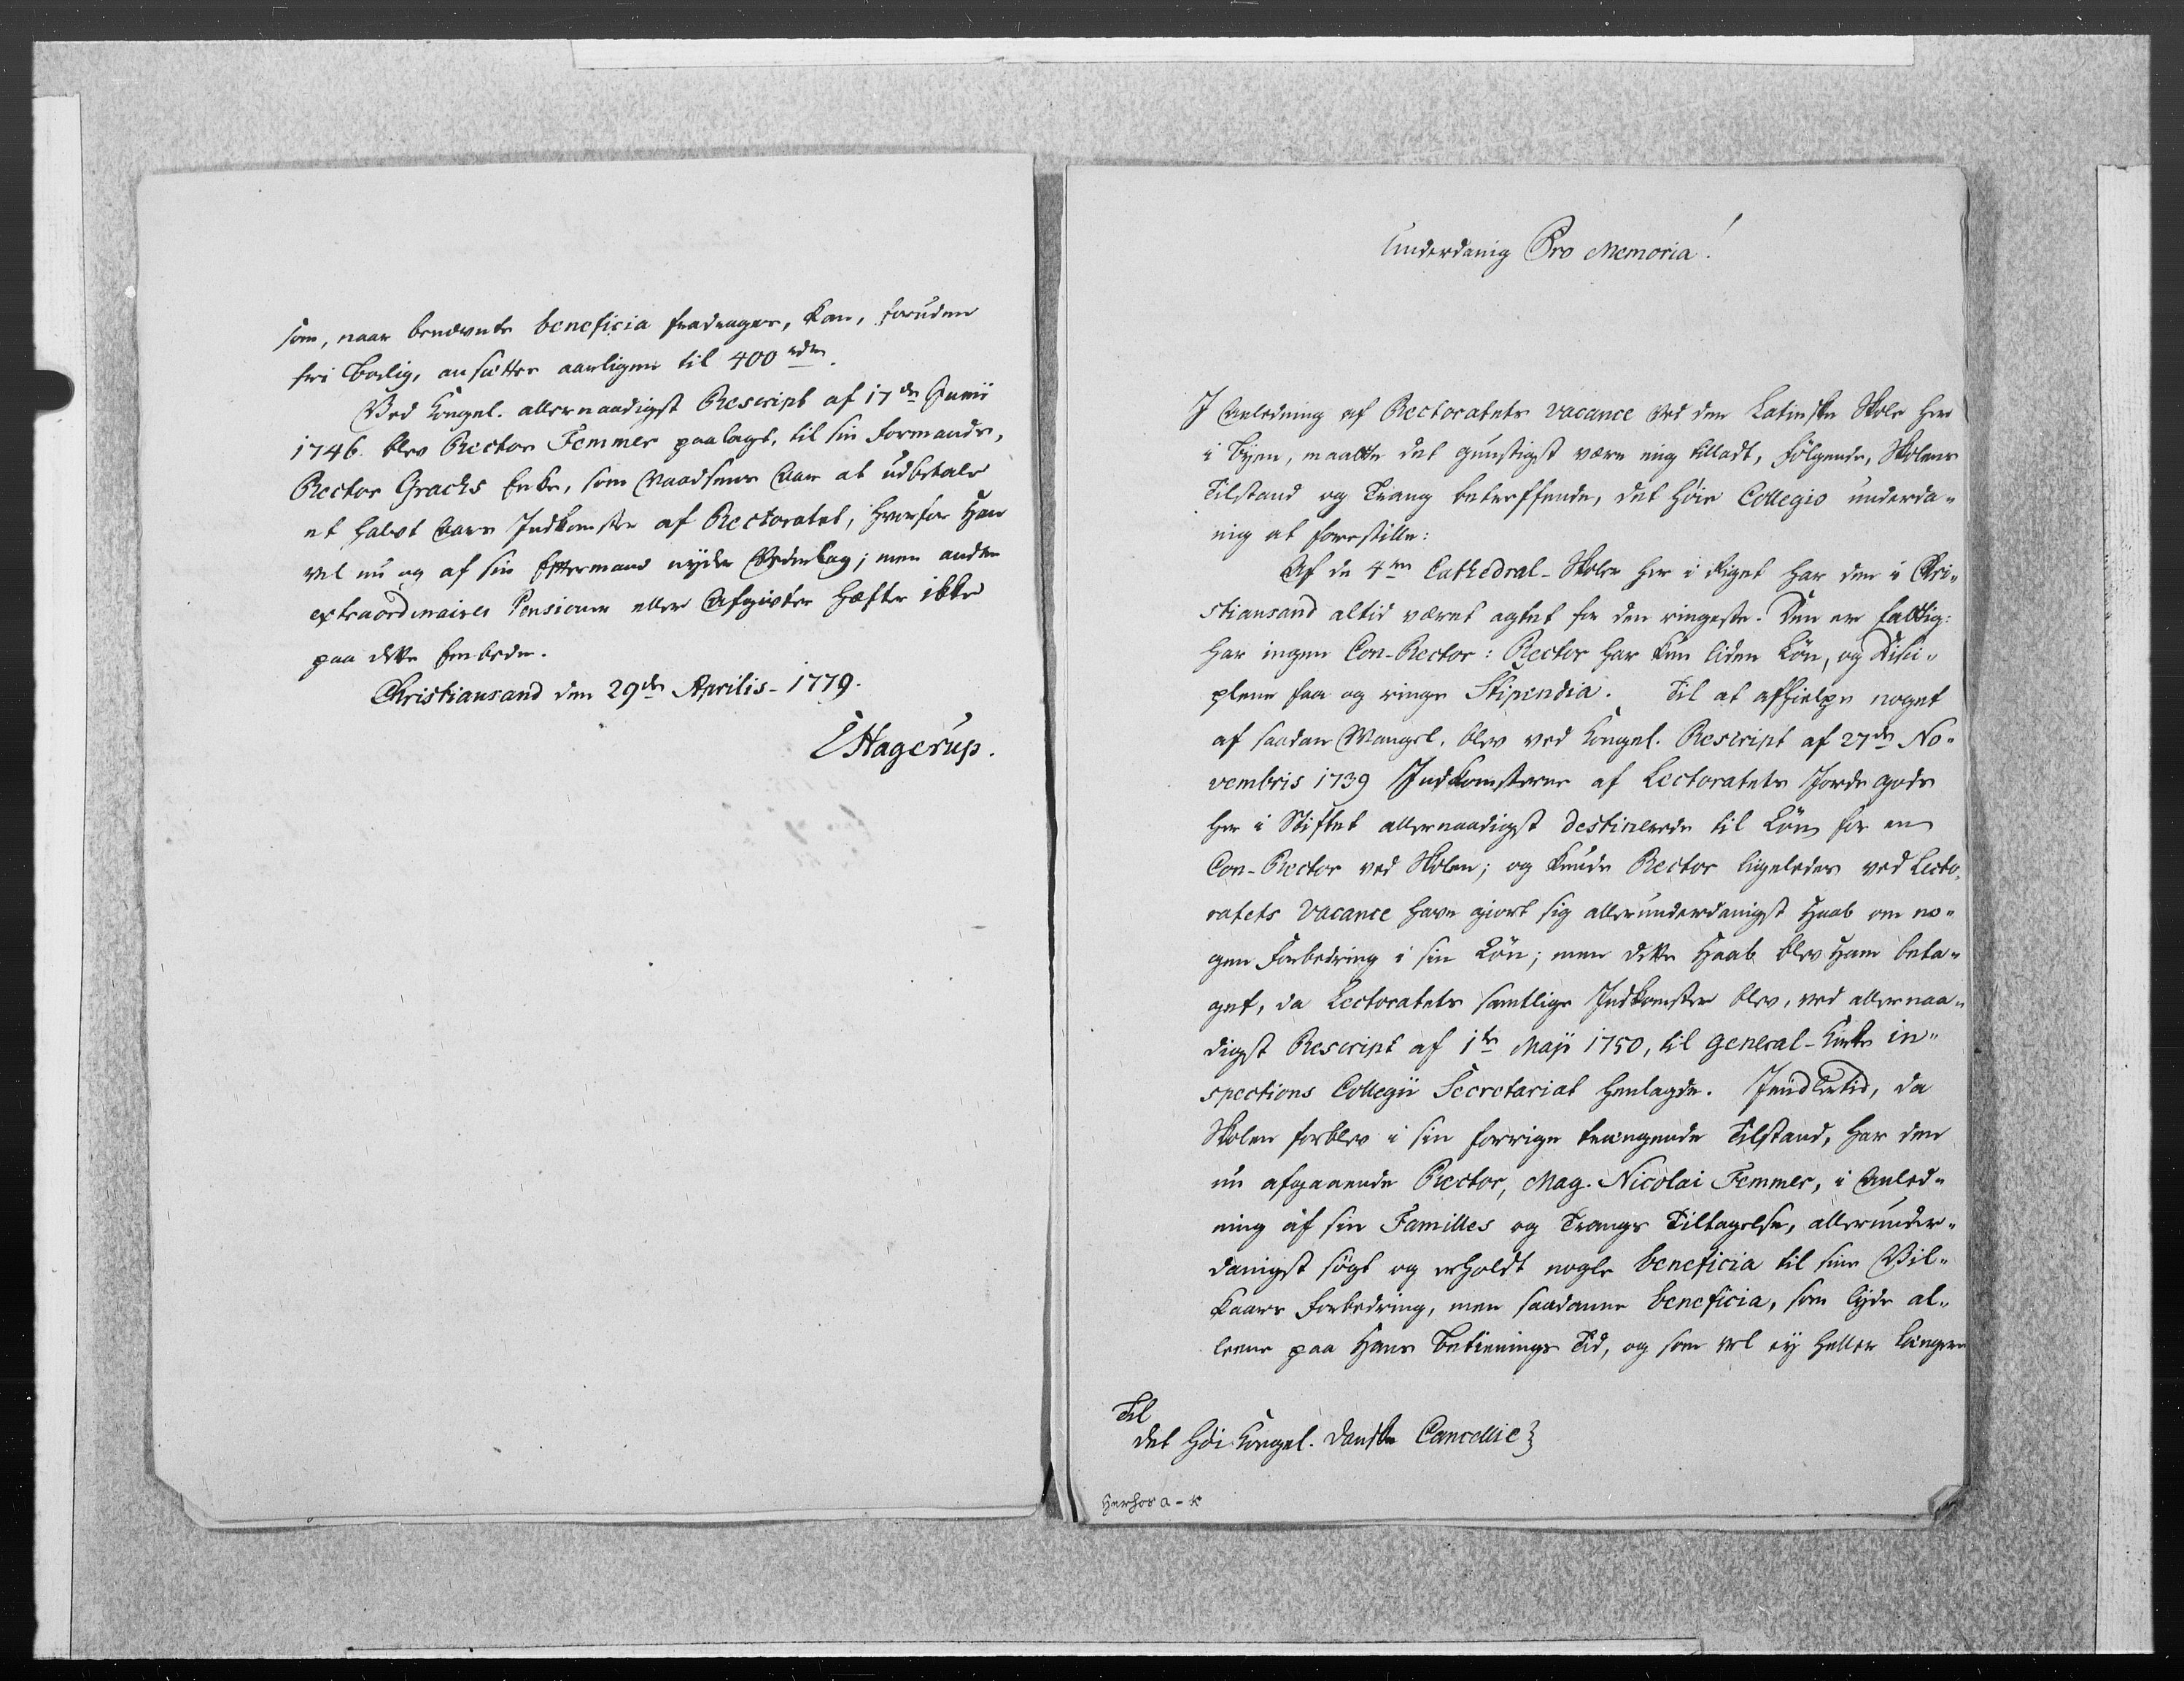 som, naar benævnte beneficia fradrages, kan, foruden
frie Bolig, ansættes aarligen til 400 rdr.
Ved Kongel. allernaadigst Rescript af 17de Junii
1746. blev Rector Femmer paalagt, til sin Formands,
Rector Grachs Enke, som Naadsens Aar at udbetale
et halvt Aars Indkomster af Rectoratet, hvorfor Han
vel nu og af sin Eftermand nyder Vederlag; men andre
extraordinaires Pensioner eller Afgivter hæfter ikke
paa dette Embede.
Christiansand den 29de Aprilis 1779.
E Hagerup.
Underdanig Pro Memoria!
I Anledning af Rectoratets vacance ved den Latinske Skole her
i Byen, maatte det gunstigst være mig tilladt, følgende, Skolens
Tilstand og Trang betreffende, det høie Collegio underda-
nig at forestille:
Af de 4re Cathedral-Skoler her i Riget har den i Chri-
stiansand altid været agtet for den ringeste. Den er fattig:
har ingen Con-Rector: Rector har kun liden Løn, og Disci-
plene faa og ringe Stipendia. Til at afhielpe noget
af saadan Mangel, blev ved Kongel. Rescript af 27de No-
vembris 1739 Indkomsterne af Lectoratets Jordegods
her i Stiftet allernaadigst destinerede til Løn for en
Con-Rector ved Skolen; og kunde Rector ligeledes ved Lecto-
ratets Vacance have giort sig allerunderdanigst Haab om no-
gen Forbedring i sin Løn; men dette Haab blev Ham beta-
get, da Lectoratets samtlige Indkomster blev, ved allernaa-
digst Rescript af 1te Maji 1750, til General-Kirke in-
spections Collegii Secretariat henlagde. Imidlertid, da
Skolen forblev i sin forrige trængende Tilstand, har den
nu afgaaende Rector, Mag. Nicolai Femmer, i Anled-
ning af sin Familles og Trangs Tiltagelse, allerunder-
danigst søgt og erholdt nogle beneficia til sine Vil-
kaars Forbedring, men saadanne beneficia, som lyde al-
leene paa Hans Betienings Tid, og som vel ey heller længere
Til
det høi Kongel. Danske Cancellie
Herhos a - k